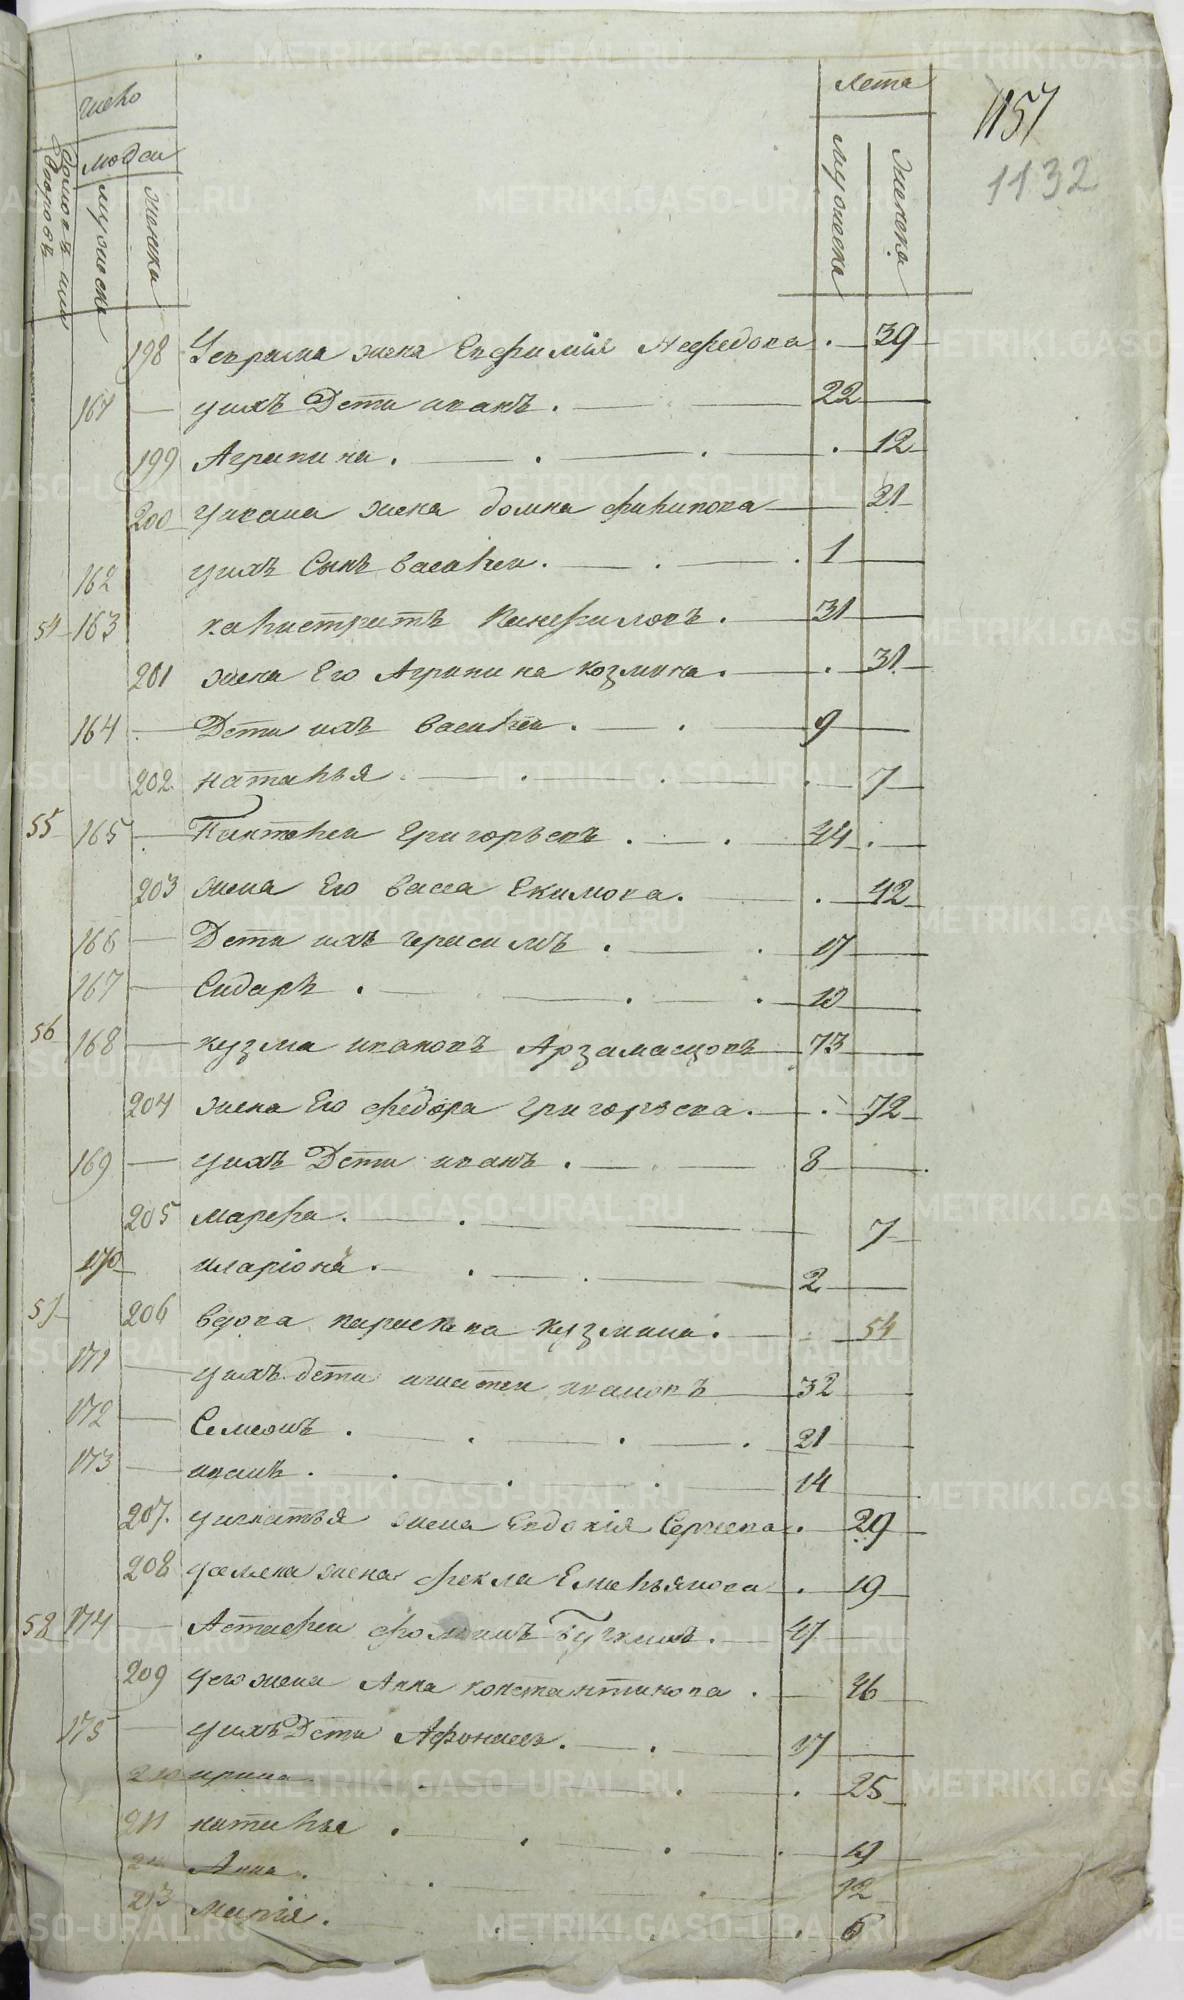 число
Лета
1157
1132
домовъ или дворовъ
людеи
мужеска
женска
мужеска
женска
198 жена Евфимия Нефедова . 39
161 — уихъ Дети иванъ . — 22
199 Агрипина . — . 12
200 уивана жена домна филипова — 21
162 уихъ Сынъ василеи . — 1
54 163 калистратъ Панфиловъ . 31
201 жена Его Агрипина козмина . — . 31
164 — Дети ихъ василеи . — 9
202 наталья — . 7
55 165 — Пантелеи Григорьевъ . — . 44 .
203 жена Его васса Екимова . — . 42
166 — Дети ихъ герасимъ . — 17
167 — Сидаръ . — 10
56 168 — кузма ивановъ Арзамасцовъ — 73
204 жена Его федора григорьева . — . 72
169 — уихъ Дети иванъ . — 8
205 марфа . — 7
170 иларионъ . — 2
57 206 вдова параскева кузмина . — 54
171 — уихъ дети игнатеи ивановъ — 32
172 — Семеонъ . — 21
173 — иванъ . — 14
207 . уигнатья жена Евдокия Сергиева . — 29
208 усемена жена фекла Емельянова . 19
58 174 — Астафеи фоминъ . — 47
209 уего жена Анна константинова . — 46
175 — уихъ Дети Афонасеи . — 17
210 ирина — . 25
211 наталья . — 19
Анна . — 12
213 мария . — . 6
METRIKI.GASO-URAL.RU